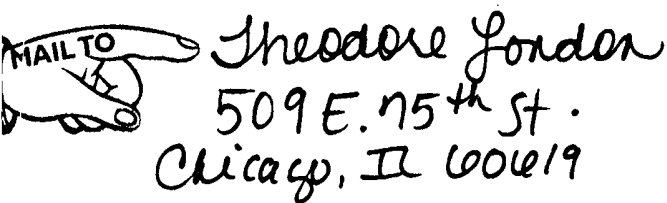 MAIL TO
Theodore London
509 E. 75th St.
Chicago, IL 60619